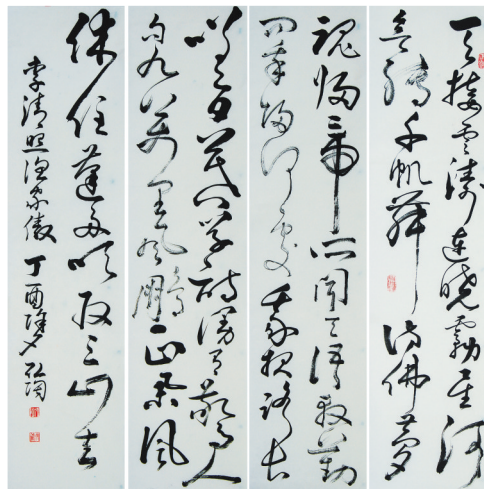 天接雲濤連曉霧星河
欲轉千帆舞仿佛夢
魂歸帝所聞天語殷勤
問我歸何處我報路長
嗟日暮學詩謾有驚人
句九萬里風鵬正舉風
休住蓬舟吹取三山去
李清照漁家傲丁酉夕